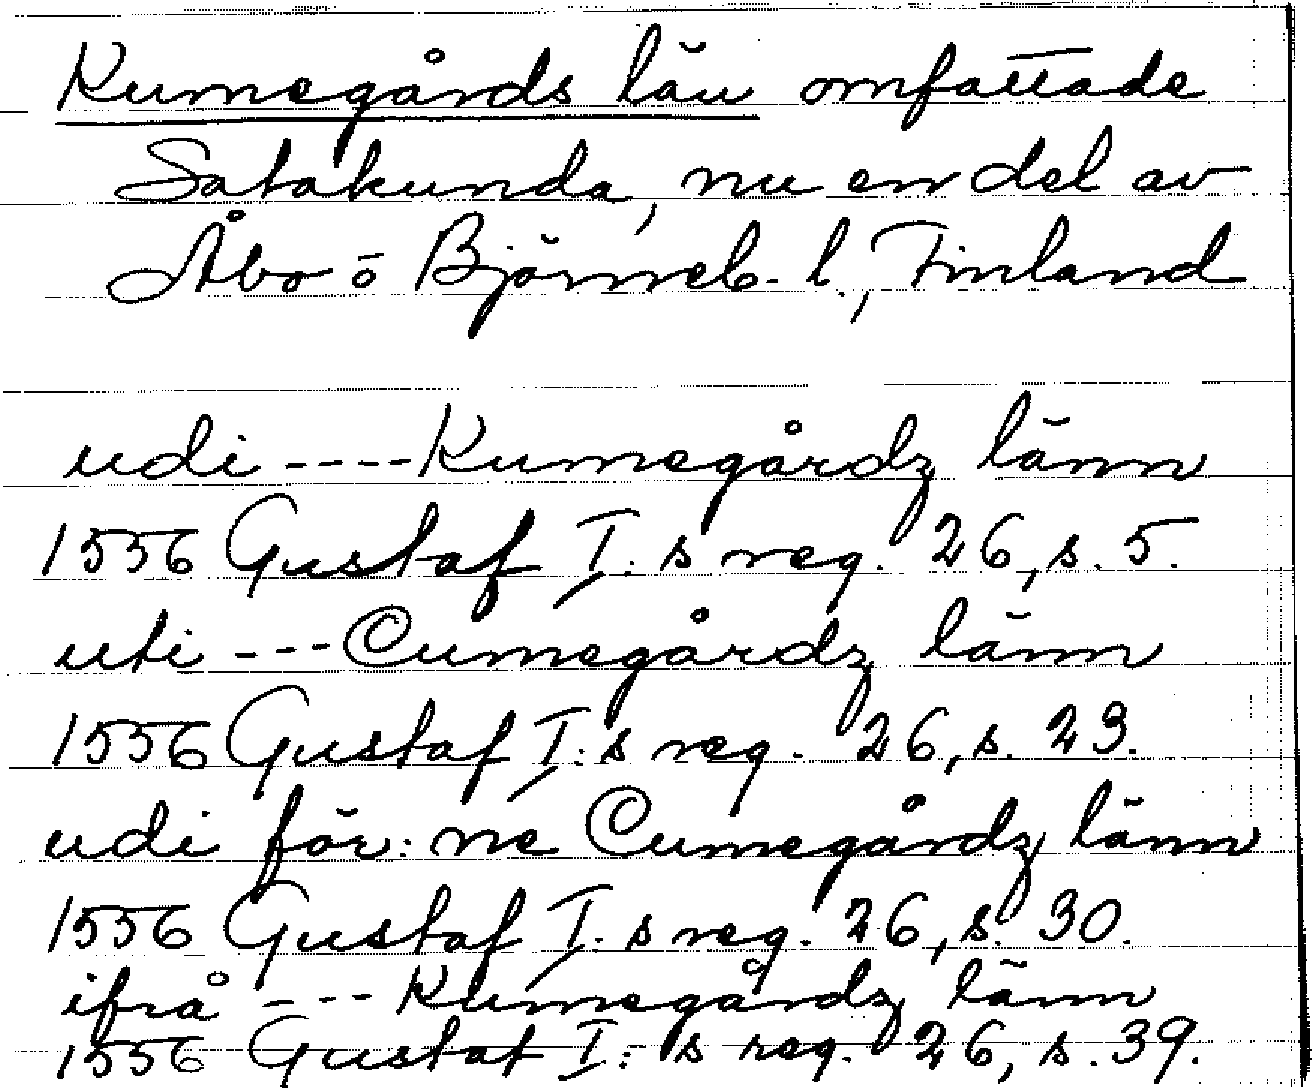 Kumegårds län omfattade
Satakunda, nu en del av
Åbo o Björneb. l., Finland
udi ----Kumegårdz länn
1556 Gustaf I: s reg. 26, s. 5.
uti ---Cumegårdz länn
1556 Gustaf I: s reg. 26, s. 23.
udi för: ne Cumegårdz länn
1556 Gustaf I: s reg. 26, s. 30.
ifrå --- Kumegårdz länn
1556 Gustaf I: s reg. 26, s. 39.